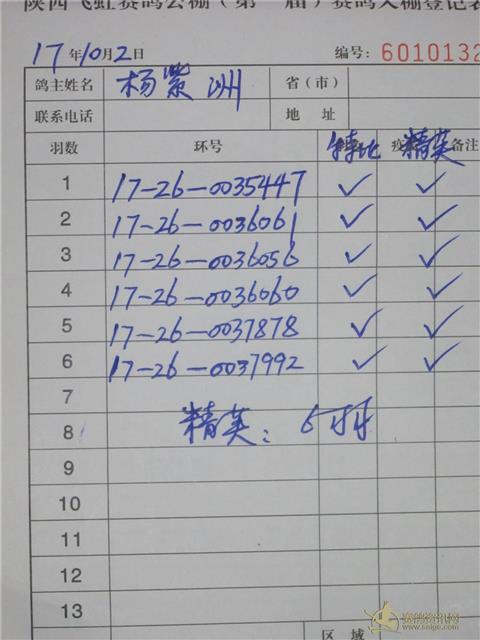 陕西飞虹赛鸽公棚（第 届）赛鸽入棚登记表
17年10月2日 编号：6010132
鸽主姓名 杨紫洲 省（市）
联系电话 地 址
羽数 环号 特比 精英 备注
1 17-26-0035447 ✓ ✓
2 17-26-0036061 ✓ ✓
3 17-26-0036056 ✓ ✓
4 17-26-0036060 ✓ ✓
5 17-26-0037878 ✓ ✓
6 17-26-0037992 ✓ ✓
7
精英：
8
9
10
11
12
13
区 域
赛鸽资讯网
www.saige.com